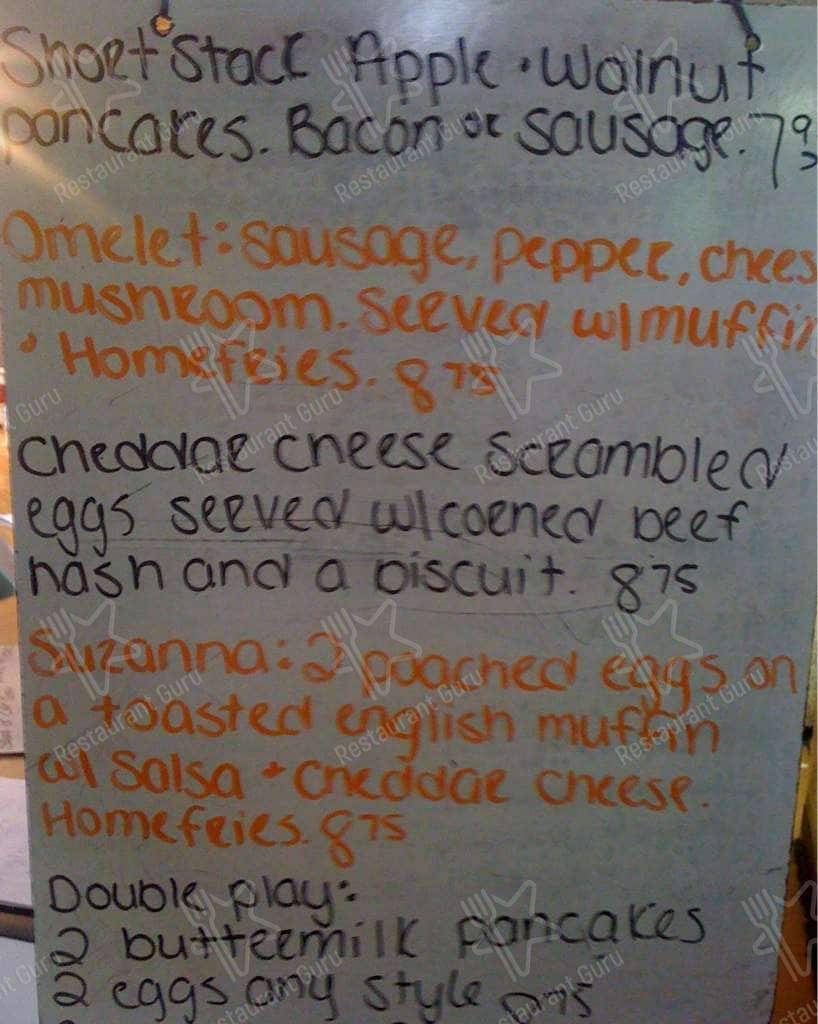 Short Stack Apple • Walnut
pancakes. Bacon or sausage. 7
Omelet: sausage, pepper, chees
mushroom. Served w/ muffin
• Homefries. 8 75
cheddar cheese scrambled
eggs served w/ corned beef
hash and a biscuit. 8 75
Suzanna: 2 poached eggs on
a toasted english muffin
w/ Salsa + cheddar cheese.
Homefries. 8 75
Double play:
2 buttermilk pancakes
2 eggs any style
Restaurant Guru